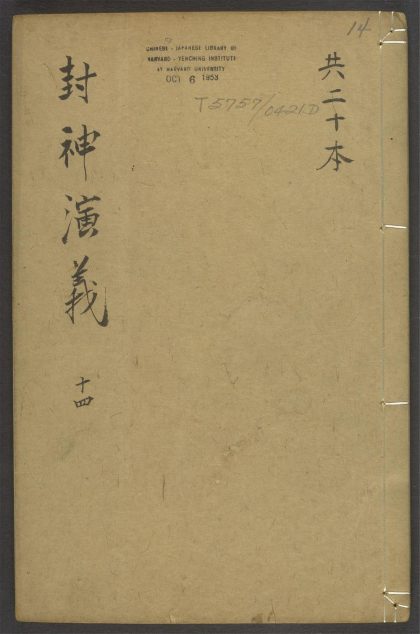 14
共二十本
CHINESE - JAPANESE LIBRARY OF
HARVARD - YENCHING INSTITUTE
AT HARVARD UNIVERSITY
OCT 6 1953
T5757/0421D
封神演義
十四